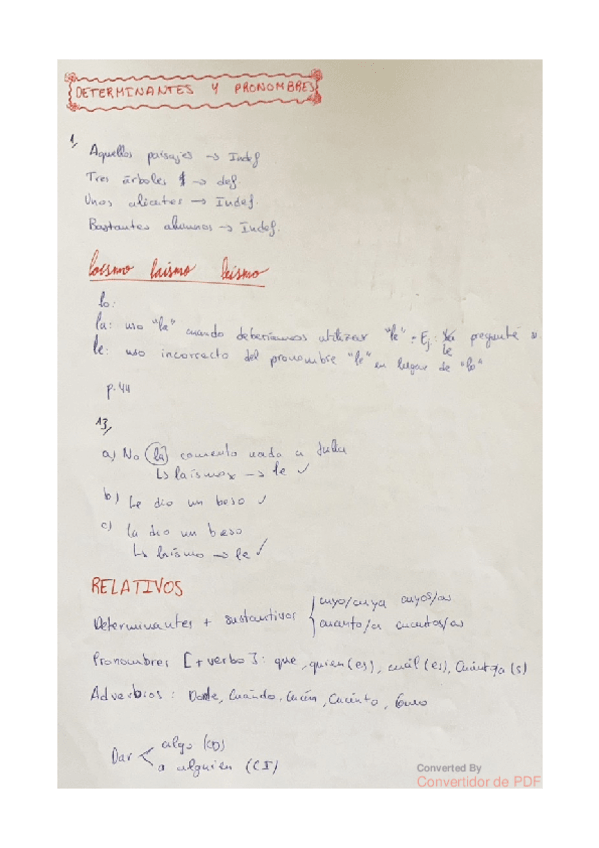 DETERMINANTES Y PRONOMBRES
1,
Aquellos paisajes → Indef
Tres árboles → def
Unos alicates → Indef.
Bastantes alumnos → Indef.
loísmo laísmo leísmo
lo:
la: uso "la" cuando deberíamos utilizar "le" Ej: le pregunté
le: uso incorrecto del pronombre "le" en lugar de "lo"
p.44
13,
a) No la comento nada a
↳ laísmo → le ✓
b) Le dio un beso ✓
c) La dio un beso
↳ laísmo → le ✓
RELATIVOS
Determinantes + sustantivos cuyo/cuya cuyos/as
cuanto/a cuantos/as
Pronombres [+ verbo]: que, quien(es), cuál(es), cuánto/a(s)
Adverbios: Donde, Cuándo, Cuánto, Cómo
Dar algo (CD)
a alguien (CI)
Converted By
Convertidor de PDF